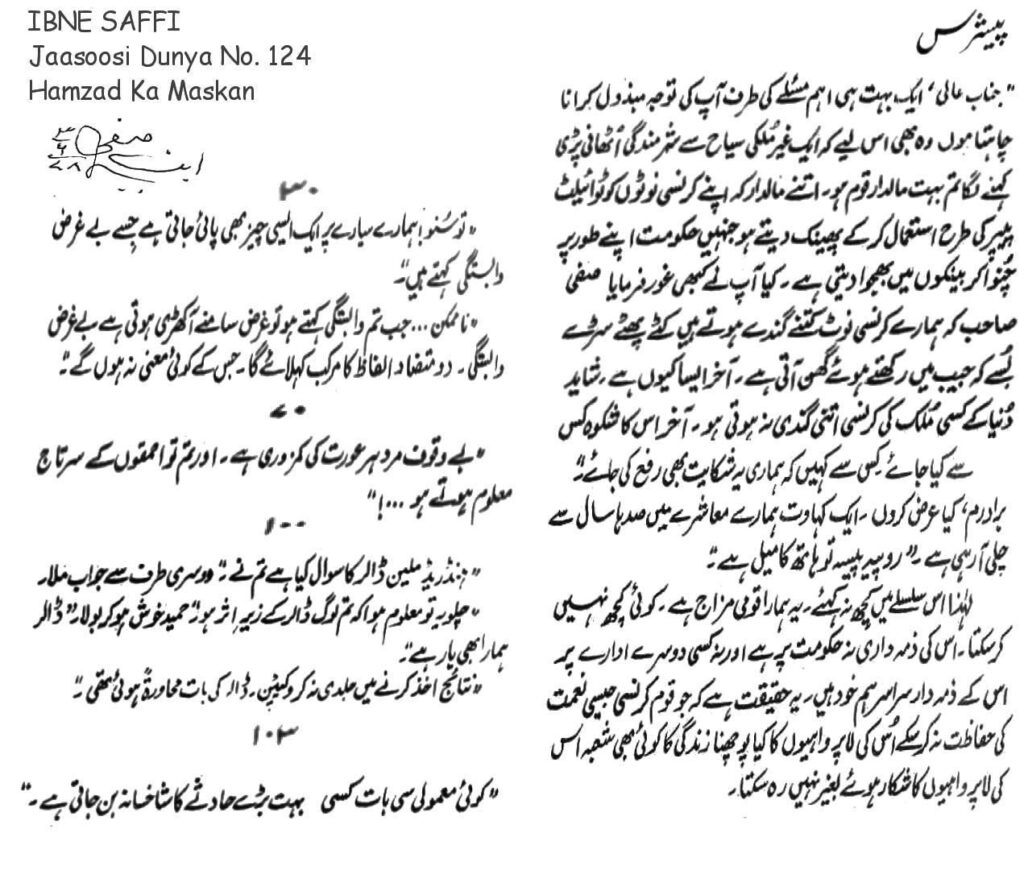 IBNE SAFFI
Jaasoosi Dunya No. 124
Hamzad Ka Maskan
پیشرس
"جناب عالی، ایک بہت ہی اہم مسئلے کی طرف آپ کی توجہ مبذول کرانا
چاہتا ہوں وہ بھی اس لیے کہ ایک غیر ملکی سیاح سے شرمندگی اُٹھانی پڑی
کہنے لگا تم بہت مالدار قوم ہو۔ اتنے مالدار کہ اپنے کرنسی نوٹوں کو ٹوائیلٹ
پیپر کی طرح استعمال کر کے پھینک دیتے ہو جنہیں حکومت اپنے طور پر
چُنوا کر بینکوں میں بھجوا دیتی ہے۔ کیا آپ نے کبھی غور فرمایا صفی
صاحب کہ ہمارے کرنسی نوٹ کتنے گندے ہوتے ہیں کٹے پھٹے سڑے
بُسے کہ جیب میں رکھتے ہوئے گھن آتی ہے۔ آخر ایسا کیوں ہے۔ شاید
دُنیا کے کسی مُلک کی کرنسی اتنی گندی نہ ہوتی ہو۔ آخر اس کا شکوہ کس
سے کیا جائے کِس سے کہیں کہ ہماری یہ شکایت بھی رفع کی جائے"
برادرم، کیا عرض کروں۔ ایک کہاوت ہمارے معاشرے میں صدہا سال سے
چلی آ رہی ہے۔ "روپیہ پیسہ تو ہاتھ کا میل ہے"۔
لہٰذا اس سلسلے میں کچھ نہ کہئے۔ یہ ہمارا قومی مزاج ہے۔ کوئی کچھ نہیں
کر سکتا۔ اس کی ذمہ داری نہ حکومت پر ہے اور نہ کسی دوسرے ادارے پر
اس کے ذمہ دار سراسر ہم خود ہیں۔ یہ حقیقت ہے کہ جو قوم کرنسی جیسی نعمت
کی حفاظت نہ کر سکے اُس کی لاپرواہیوں کا کیا پوچھنا زندگی کا کوئی بھی شعبہ اس
کی لاپرواہیوں کا شکار ہوئے بغیر نہیں رہ سکتا۔
ابن صفی
۳۰
"تو سُنو! ہمارے سیارے پر ایک ایسی چیز بھی پائی جاتی ہے جسے بے غرض
وابستگی کہتے ہیں"۔
"ناممکن... جب تم وابستگی کہتے ہو تو غرض سامنے آ کھڑی ہوتی ہے بے غرض
وابستگی۔ دو متضاد الفاظ کا مرکب کہلائے گا۔ جس کے کوئی معنی نہ ہوں گے"۔
۷۰
"بے وقوف مرد ہر عورت کی کمزوری ہے۔ اور تم تو احمقوں کے سرتاج
معلوم ہوتے ہو ...!"
۱۰۰
"ہنڈریڈ ملین ڈالر کا سوال کیا ہے تم نے"۔ دوسری طرف سے جواب ملا۔
"چلو یہ تو معلوم ہوا کہ تم لوگ ڈالر کے زیرِ اثر ہو" حمید خوش ہو کر بولا۔ "ڈالر
ہمارا بھی یار ہے"۔
"نتائج اخذ کرنے میں جلدی نہ کرو کیپٹن۔ ڈالر کی بات محاورۃً ہوئی تھی"۔
۱۰۳
"کوئی معمولی سی بات کسی بہت بڑے حادثے کا شاخسانہ بن جاتی ہے۔"